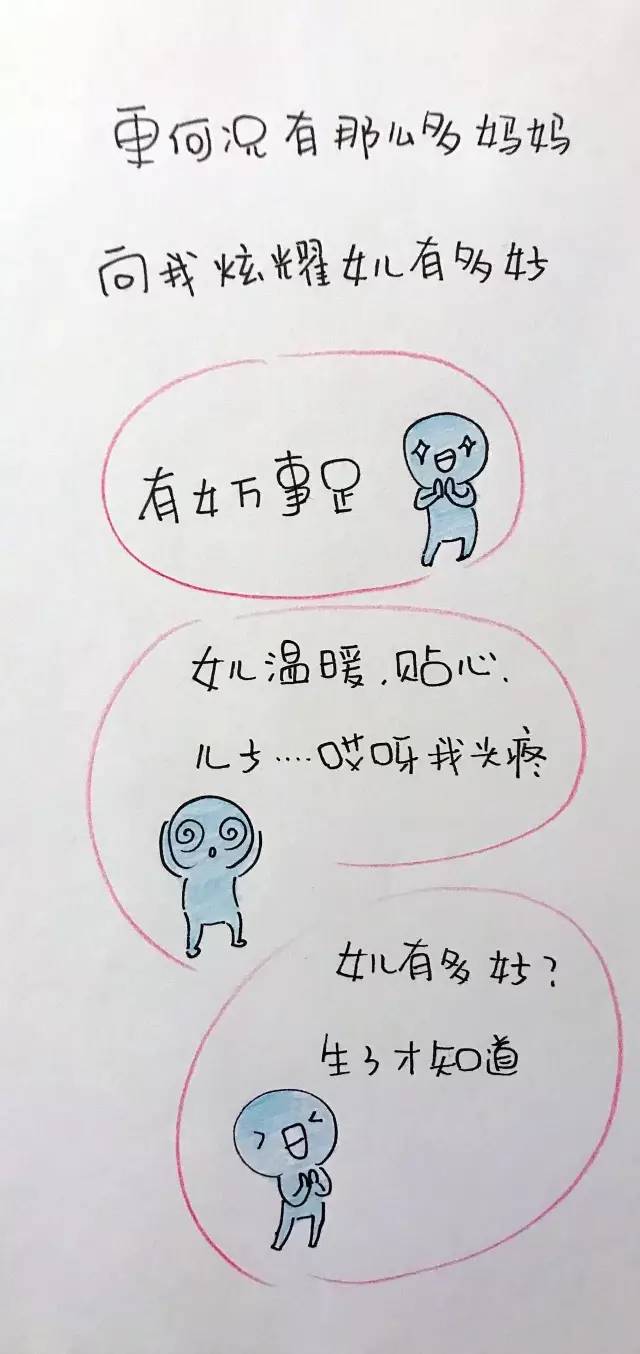 更何况有那么多妈妈
向我炫耀女儿有多好
有女万事足
女儿温暖.贴心.
儿子....哎呀我头疼
女儿有多好?
生了才知道